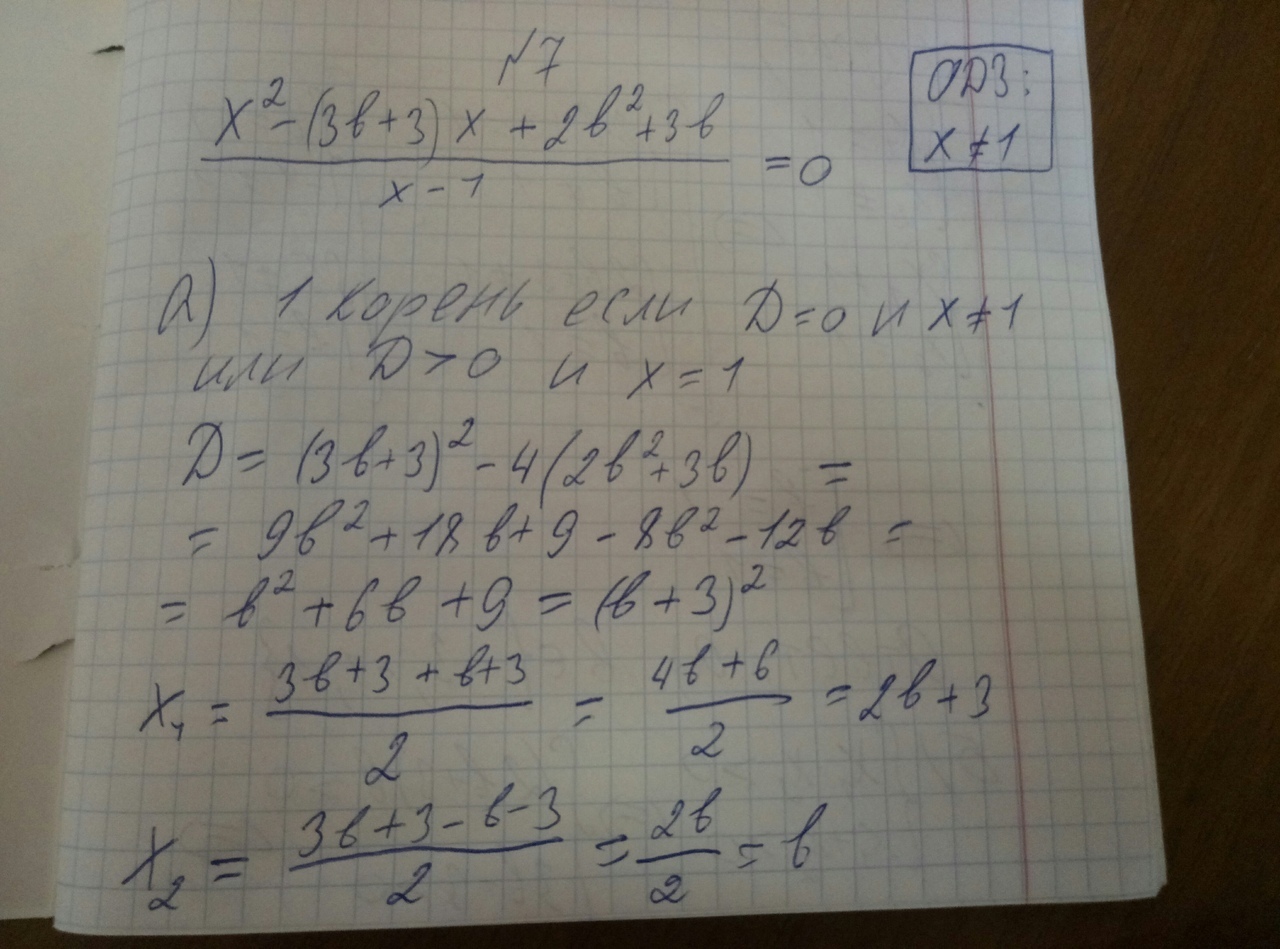 №7
x² - (3b+3) x + 2b² + 3b
x - 1
= 0
ОДЗ:
x ≠ 1
а) 1 корень если D = 0 и x ≠ 1
или D > 0 и x = 1
D = (3b+3)² - 4(2b² + 3b) =
= 9b² + 18b + 9 - 8b² - 12b =
= b² + 6b + 9 = (b+3)²
x₁ = (3b+3 + b+3)/2 = (4b+6)/2 = 2b+3
x₂ = (3b+3 - b-3)/2 = 2b/2 = b